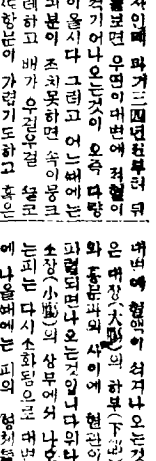 자인데 파거三四년전부터 뒤
를보면 우연이대변에 적혈이
겨기어나오는것이 오즉 다량
이올시다 그리고 어느때에는
과분이 조치못하면 속이뭉크
레하고 배가 우걸우걸 끌코
항문이 가렵기도하고 혹은
대변에 혈액이 석겨나오는것
은 대장(大膓)의 하부(下部)
와 항문과의 사이에 혈관이
파렬되면나오는것입니다위나
소장(小膓)의 상부에서 나오
는피는 다시소화됨으로 대변
에 나올때에는 피의 형체를